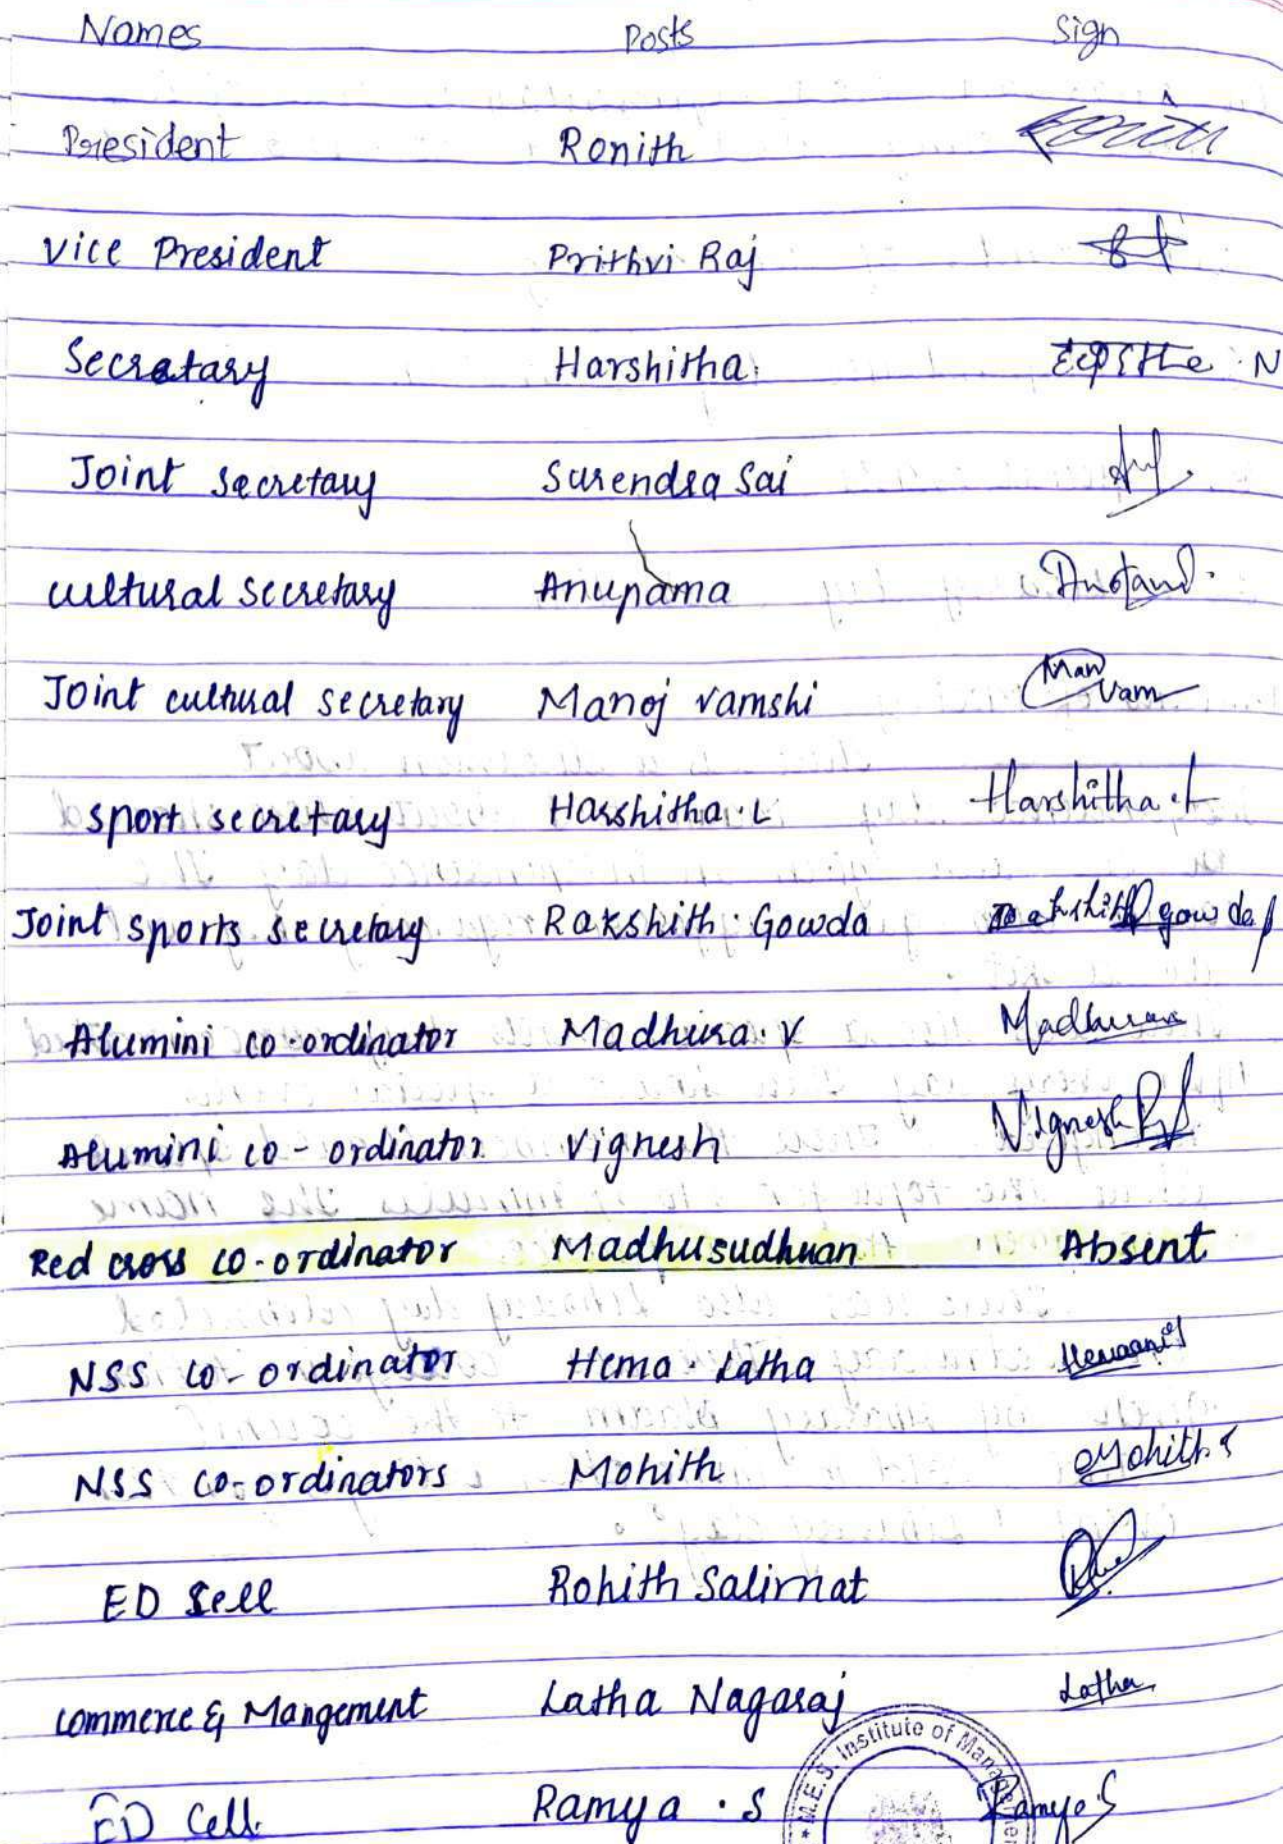 Names Posts Sign
President Ronith Ronith
Vice President Prithvi Raj
Secretary Harshitha
Joint Secretary Surendra Sai
cultural secretary Anupama
Joint cultural secretary Manoj vamshi Man Vam
Sport secretary Harshitha. L Harshitha. L
Joint Sports secretary Rakshith. Gowda Rakshith gowda
Alumini co-ordinator Madhura. V Madhura
Alumini co-ordinator Vignesh Vignesh
Red cross co-ordinator Madhusudhuan Absent
NSS co-ordinator Hema. Latha
NSS co-ordinators Mohith Mohith S
ED Sell Rohith Salimat
commerce & Mangement Latha Nagaraj Latha
ED Cell Ramya. S Ramya S
* M.E.S. Institute of Management